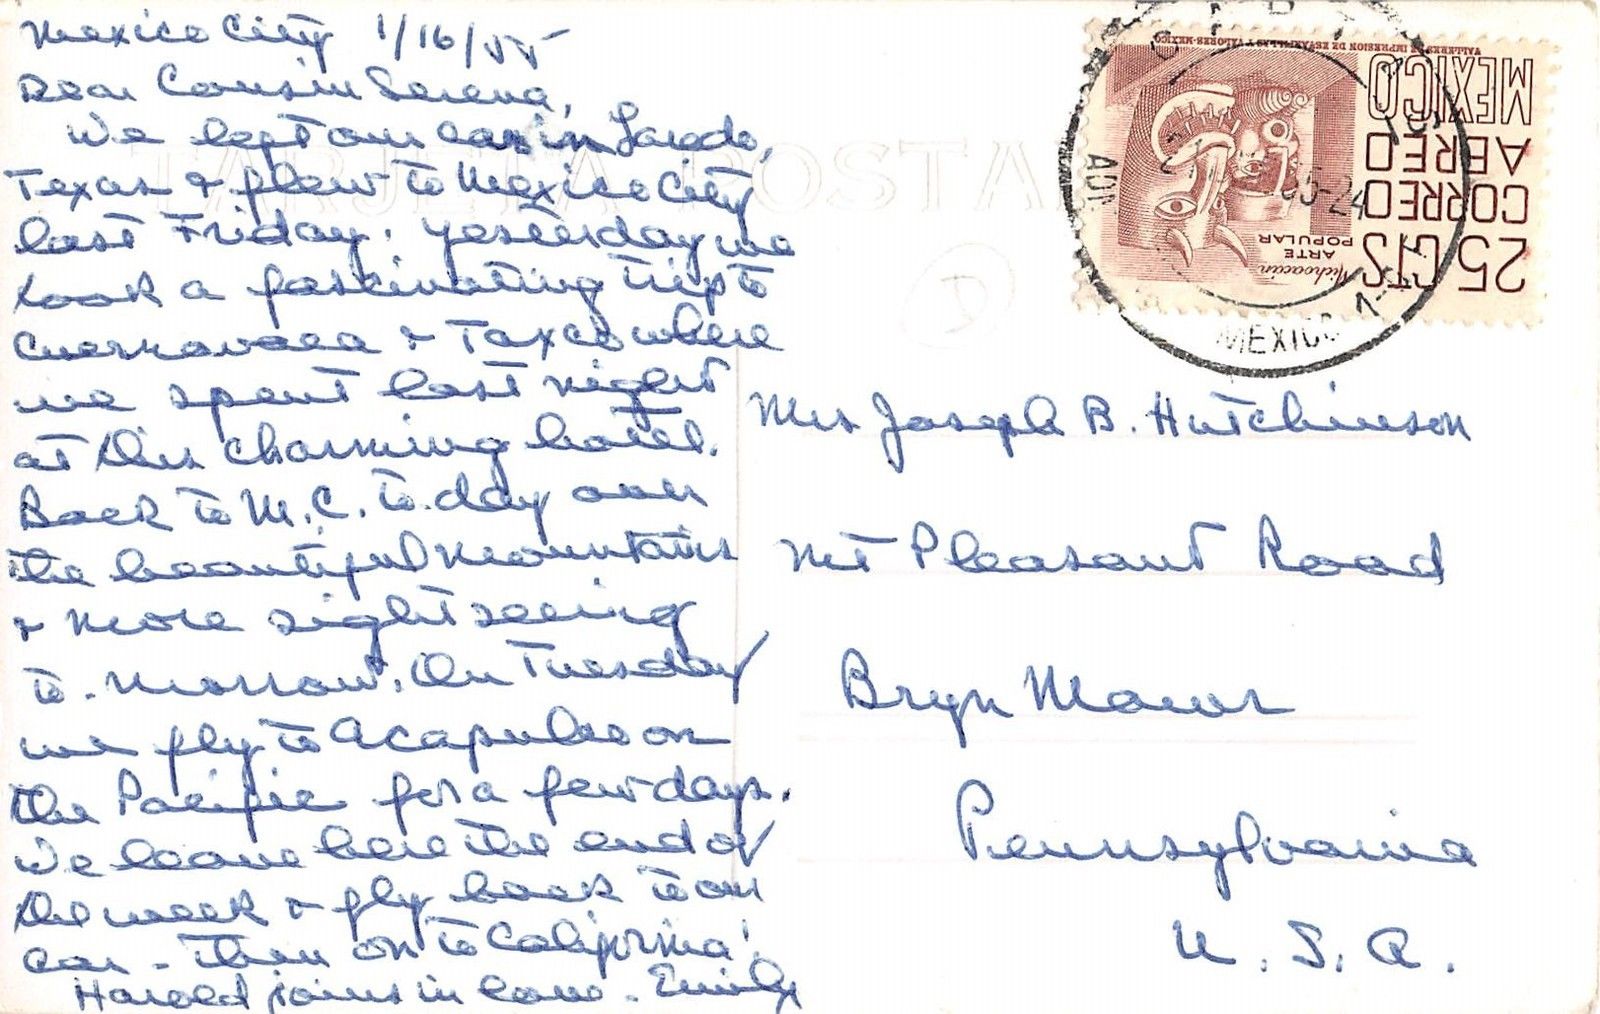 Mexico City 1/16/55
Dear Cousin Serena,
We left our car in Laredo,
Texas & flew to Mexico City
last Friday. Yesterday we
took a fascinating trip to
Cuernavaca & Taxco where
we spent last night
at this charming hotel.
Back to M.C. to-day over
the beautiful mountains
& more sight seeing
to-morrow. On Tuesday
we fly to Acapulco on
the Pacific for a few days.
We leave here the end of
the week & fly back to our
car - then on to California!
Harold joins in love - Emily
TARJETA POSTAL
TALLERES DE IMPRESION DE ESTAMPILLAS Y VALORES-MEXICO
MEXICO
AEREO
CORREO
25 CTS
Michoacán
ARTE
POPULAR
MEXICO
Mrs Joseph B. Hutchinson
Mt Pleasant Road
Bryn Mawr
Pennsylvania
U. S. A.